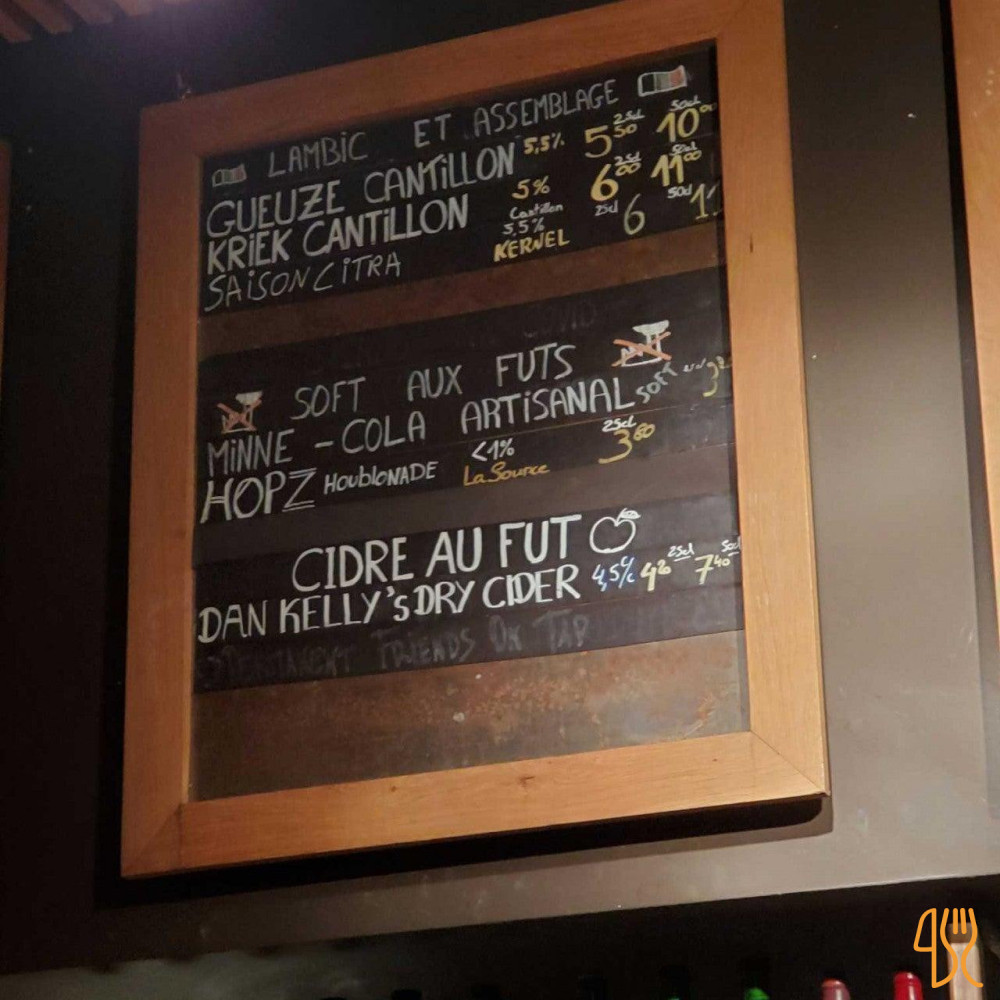 LAMBIC ET ASSEMBLAGE
GUEUZE CANTILLON 5,5% 25cl 5 50 50cl 10 00
KRIEK CANTILLON 5% Cantillon 25cl 6 00 50cl 11 00
SAISON CITRA 5,5% KERNEL 25cl 6 50cl
COVID
SOFT AUX FUTS
MINNE - COLA ARTISANAL SOFT
HOPZ HOUBLONADE <1% La Source 25cl 3 60
CIDRE AU FUT
DAN KELLY'S DRY CIDER 4,5% 25cl 4 20 50cl 7 40
PERMANENT FRIENDS ON TAP